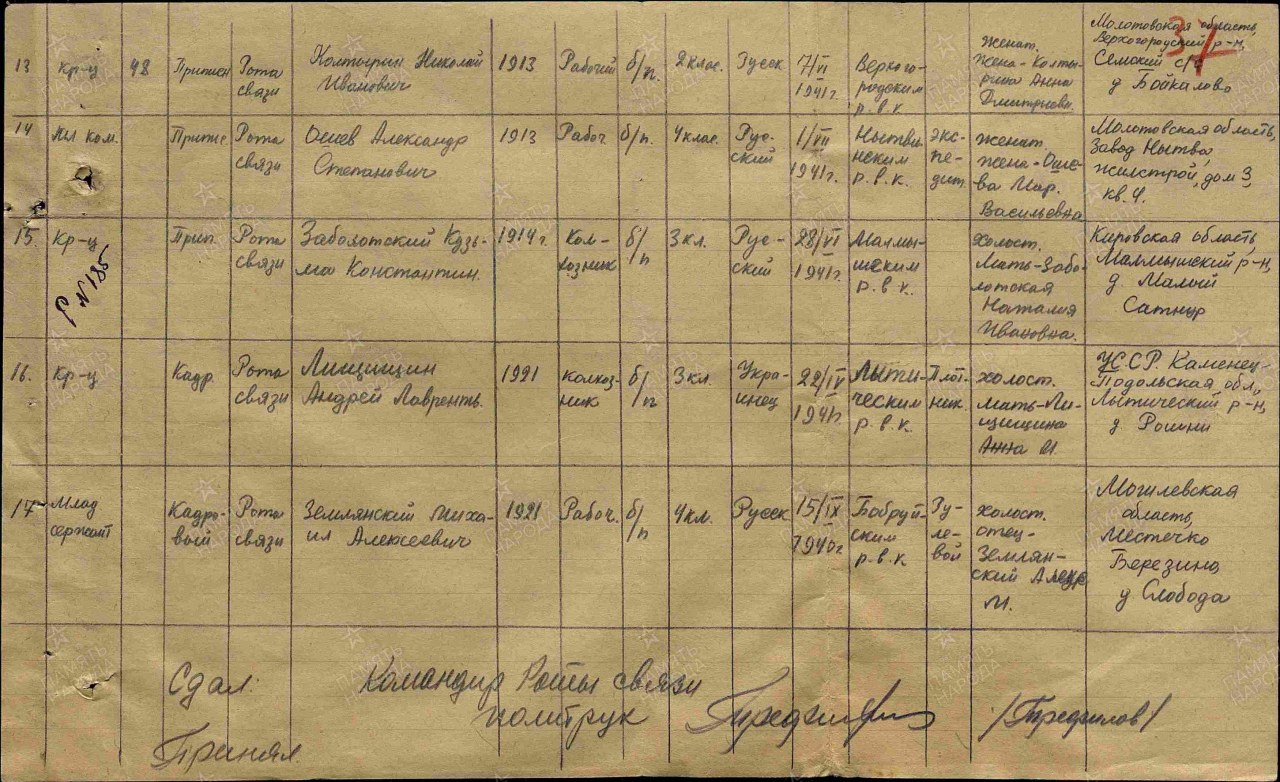 37
13 кр-ц 48 Приписн Рота связи Колтырин Николай Иванович 1913 Рабочий б/п. 2 клас. Русск 7/VI 1941г. Верхогородским р.в.к. женат. жена-Колтырина Анна Дмитриевн. Молотовская область, Верхогородский р-н, Семский с/с д Бойкалово
14 Мл ком. Припис Рота связи Ошев Александр Степанович 1913 Рабоч. б/п. 4 клас. Русский 1/VII 1941г. Нытвинским р.в.к. экспедит. женат. жена-Ошева Мар. Васильевна Молотовская область, Завод Нытва, жилстрой, дом 3, кв. 4.
15. Кр-ц Прип. Рота связи Заболотский Кузьма Константин. 1914 г. Колхозник б/п 3 кл. Русский 28/VI 1941г. Малмышским р.в.к. холост. Мать-Заболотская Наталия Ивановна. Кировская область, Малмышский р-н, д. Малый Сатнур
№ 185
16. Кр-ц Кадр. Рота связи Лищищин Андрей Лаврент. 1921 колхозник б/п 3 кл. Украинец 22/IV 1941г. Лытическим р.в.к. Плотник. холост. мать-Лищищина Анна И. УССР. Каменец-Подольская обл, Лытический р-н, д. Рошни
17 Млад сержант Кадровый Рота связи Землянский Михаил Алексеевич 1921 Рабоч. б/п 4 кл. Русск 15/IX 1940г Бобруйским р.в.к Рулевой холост. отец-Землянский М. Могилевская область, Местечко Березина, у Слобода
Сдал: Командир Роты связи
политрук /Трефилов/
Принял